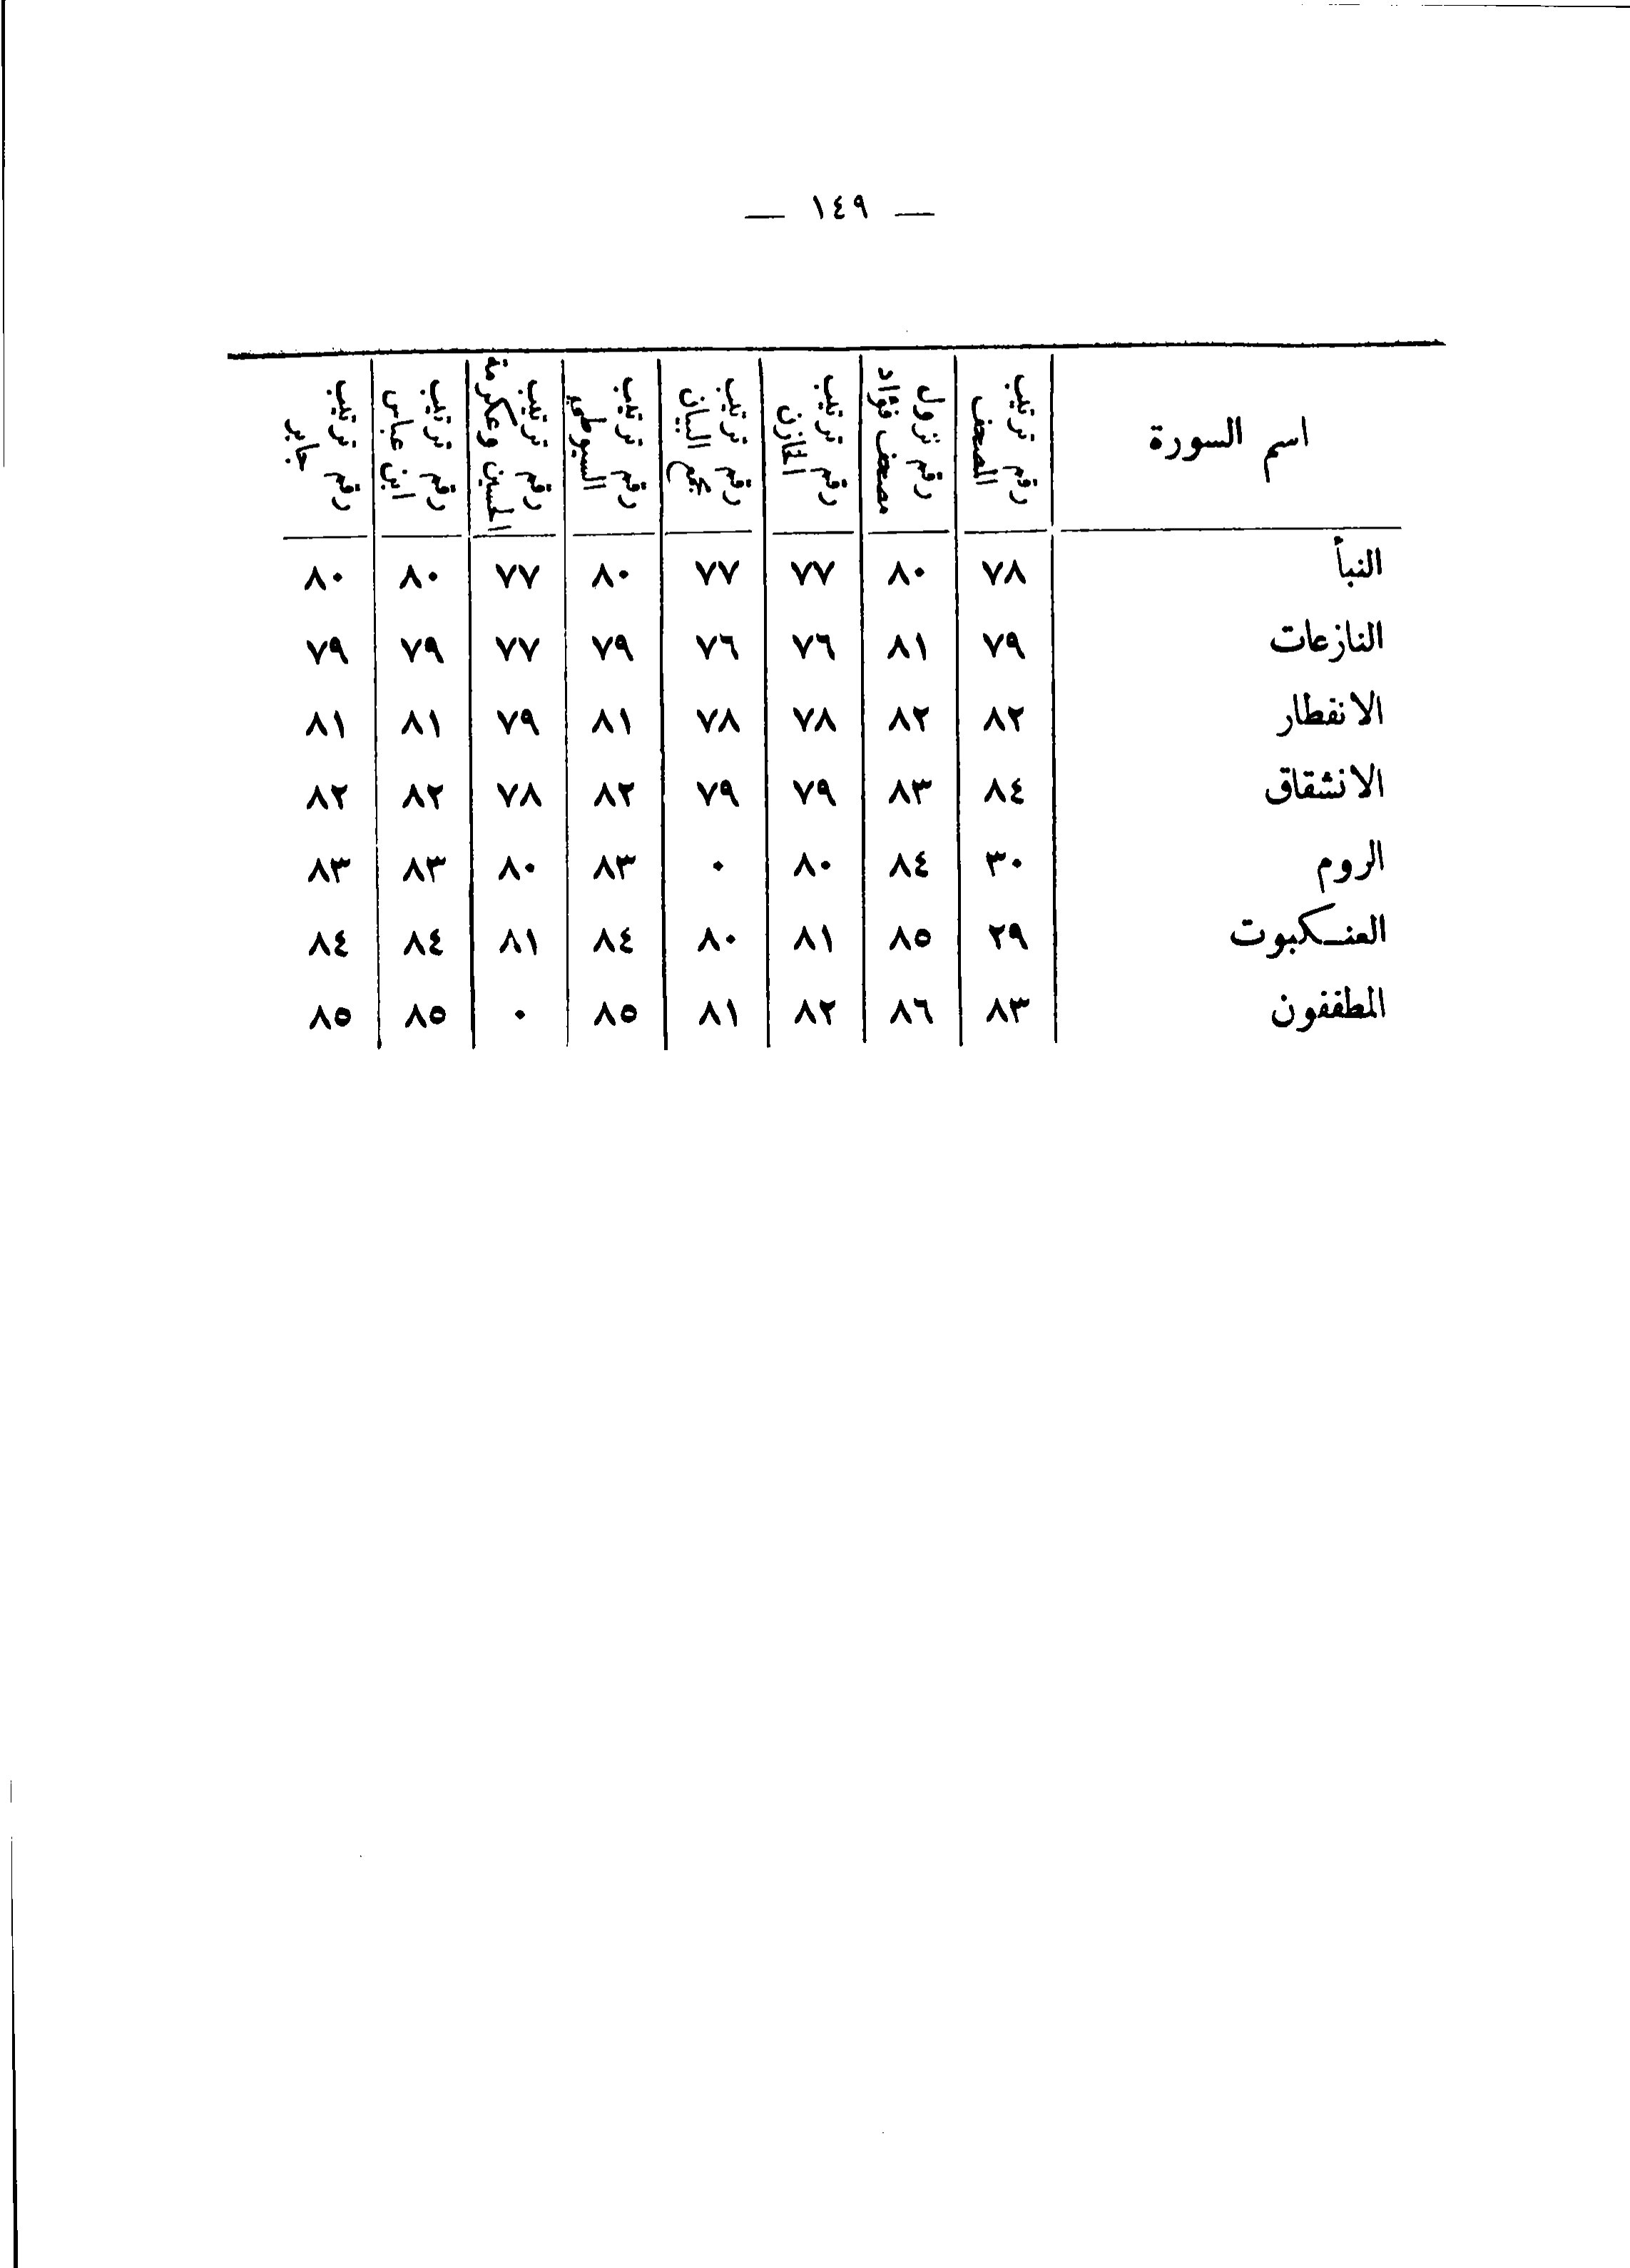 — ١٤٩ —
اسم السورة رقم ترتيب المصحف رقم نزول مصحف فؤاد رقم ترتيب الخازن رقم ترتيب مجمع البيان رقم ترتيب السيوطي رقم ترتيب الحسين وعكرمة رقم ترتيب ابن عباس رقم ترتيب جابر
النبأ ٧٨ ٨٠ ٧٧ ٧٧ ٨٠ ٧٧ ٨٠ ٨٠
النازعات ٧٩ ٨١ ٧٦ ٧٦ ٧٩ ٧٧ ٧٩ ٧٩
الانفطار ٨٢ ٨٢ ٧٨ ٧٨ ٨١ ٧٩ ٨١ ٨١
الانشقاق ٨٤ ٨٣ ٧٩ ٧٩ ٨٢ ٧٨ ٨٢ ٨٢
الروم ٣٠ ٨٤ ٨٠ ٠ ٨٣ ٨٠ ٨٣ ٨٣
العنكبوت ٢٩ ٨٥ ٨١ ٨٠ ٨٤ ٨١ ٨٤ ٨٤
المطففون ٨٣ ٨٦ ٨٢ ٨١ ٨٥ ٠ ٨٥ ٨٥